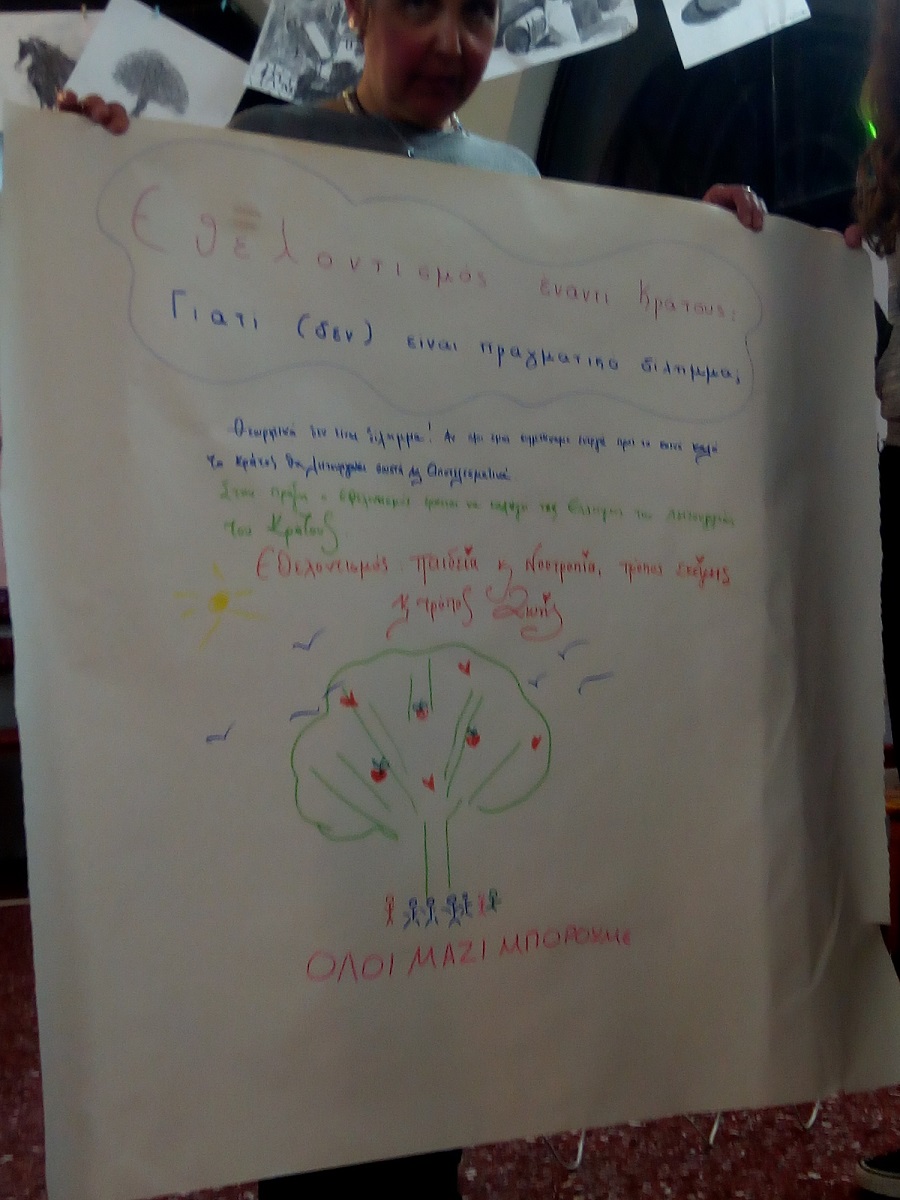 Εθελοντισμός έναντι Κράτους:
Γιατι (δεν) ειναι πραγματικο διλημμα;
Θεωρητικά δεν είναι δίλημμα! Αν όλοι εμείς ενεργά προς το κοινό καλό
το κράτος θα λειτουργούσε σωστά κ Αποτελεσματικά
Στην πράξη ο εθελοντισμός έρχεται να καλύψει τις ελλείψεις της λειτουργίας
του Κράτους
Εθελοντισμός παιδεία κ Νοοτροπία, τρόπος σκέψης
κ τρόπος Ζωής
ΟΛΟΙ ΜΑΖΙ ΜΠΟΡΟΥΜΕ